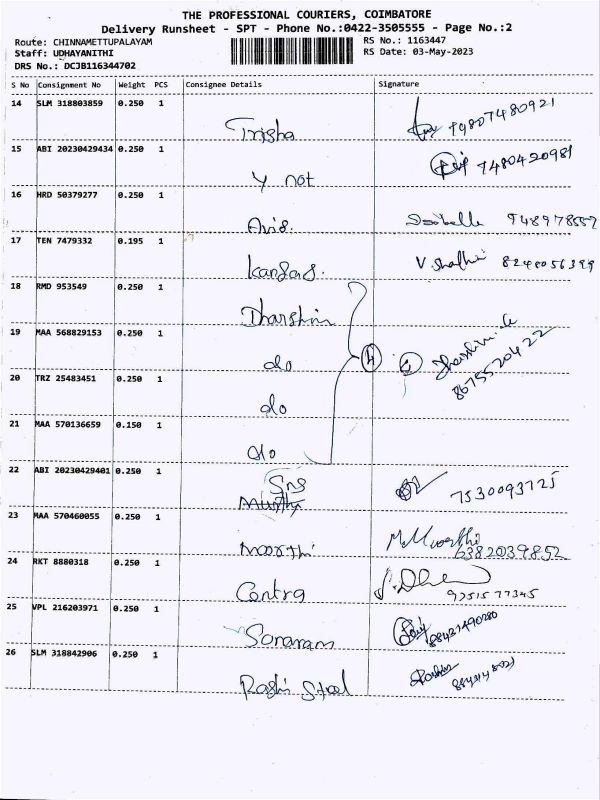 THE PROFESSIONAL COURIERS, COIMBATORE
Delivery Runsheet - SPT - Phone No.:0422-3505555 - Page No.:2
Route: CHINNAMETTUPALAYAM
RS No.: 1163447
Staff: UDHAYANITHI
RS Date: 03-May-2023
DRS No.: DCJB116344702
S No Consignment No Weight PCS Consignee Details Signature
14 SLM 318803859 0.250 1
Trisha 94807480921
15 ABI 20230429434 0.250 1
Y not 7480420981
16 HRD 50379277 0.250 1
Avis. 948978552
17 TEN 7479332 0.195 1
Kangas. V. Shathi 8248056399
18 RMD 953549 0.250 1
Dharshini
19 MAA 568829153 0.250 1
do 4 4 8675520422
20 TRZ 25483451 0.250 1
do
21 MAA 570136659 0.150 1
do
22 ABI 20230429401 0.250 1
Sns
Murthy 7530093725
23 MAA 570460055 0.250 1
Moorthi M. Moorthi 6382039852
24 RKT 8880318 0.250 1
Contra 9751577345
25 VPL 216203971 0.250 1
Sonaram 88421490280
26 SLM 318842906 0.250 1
Rashi Steel